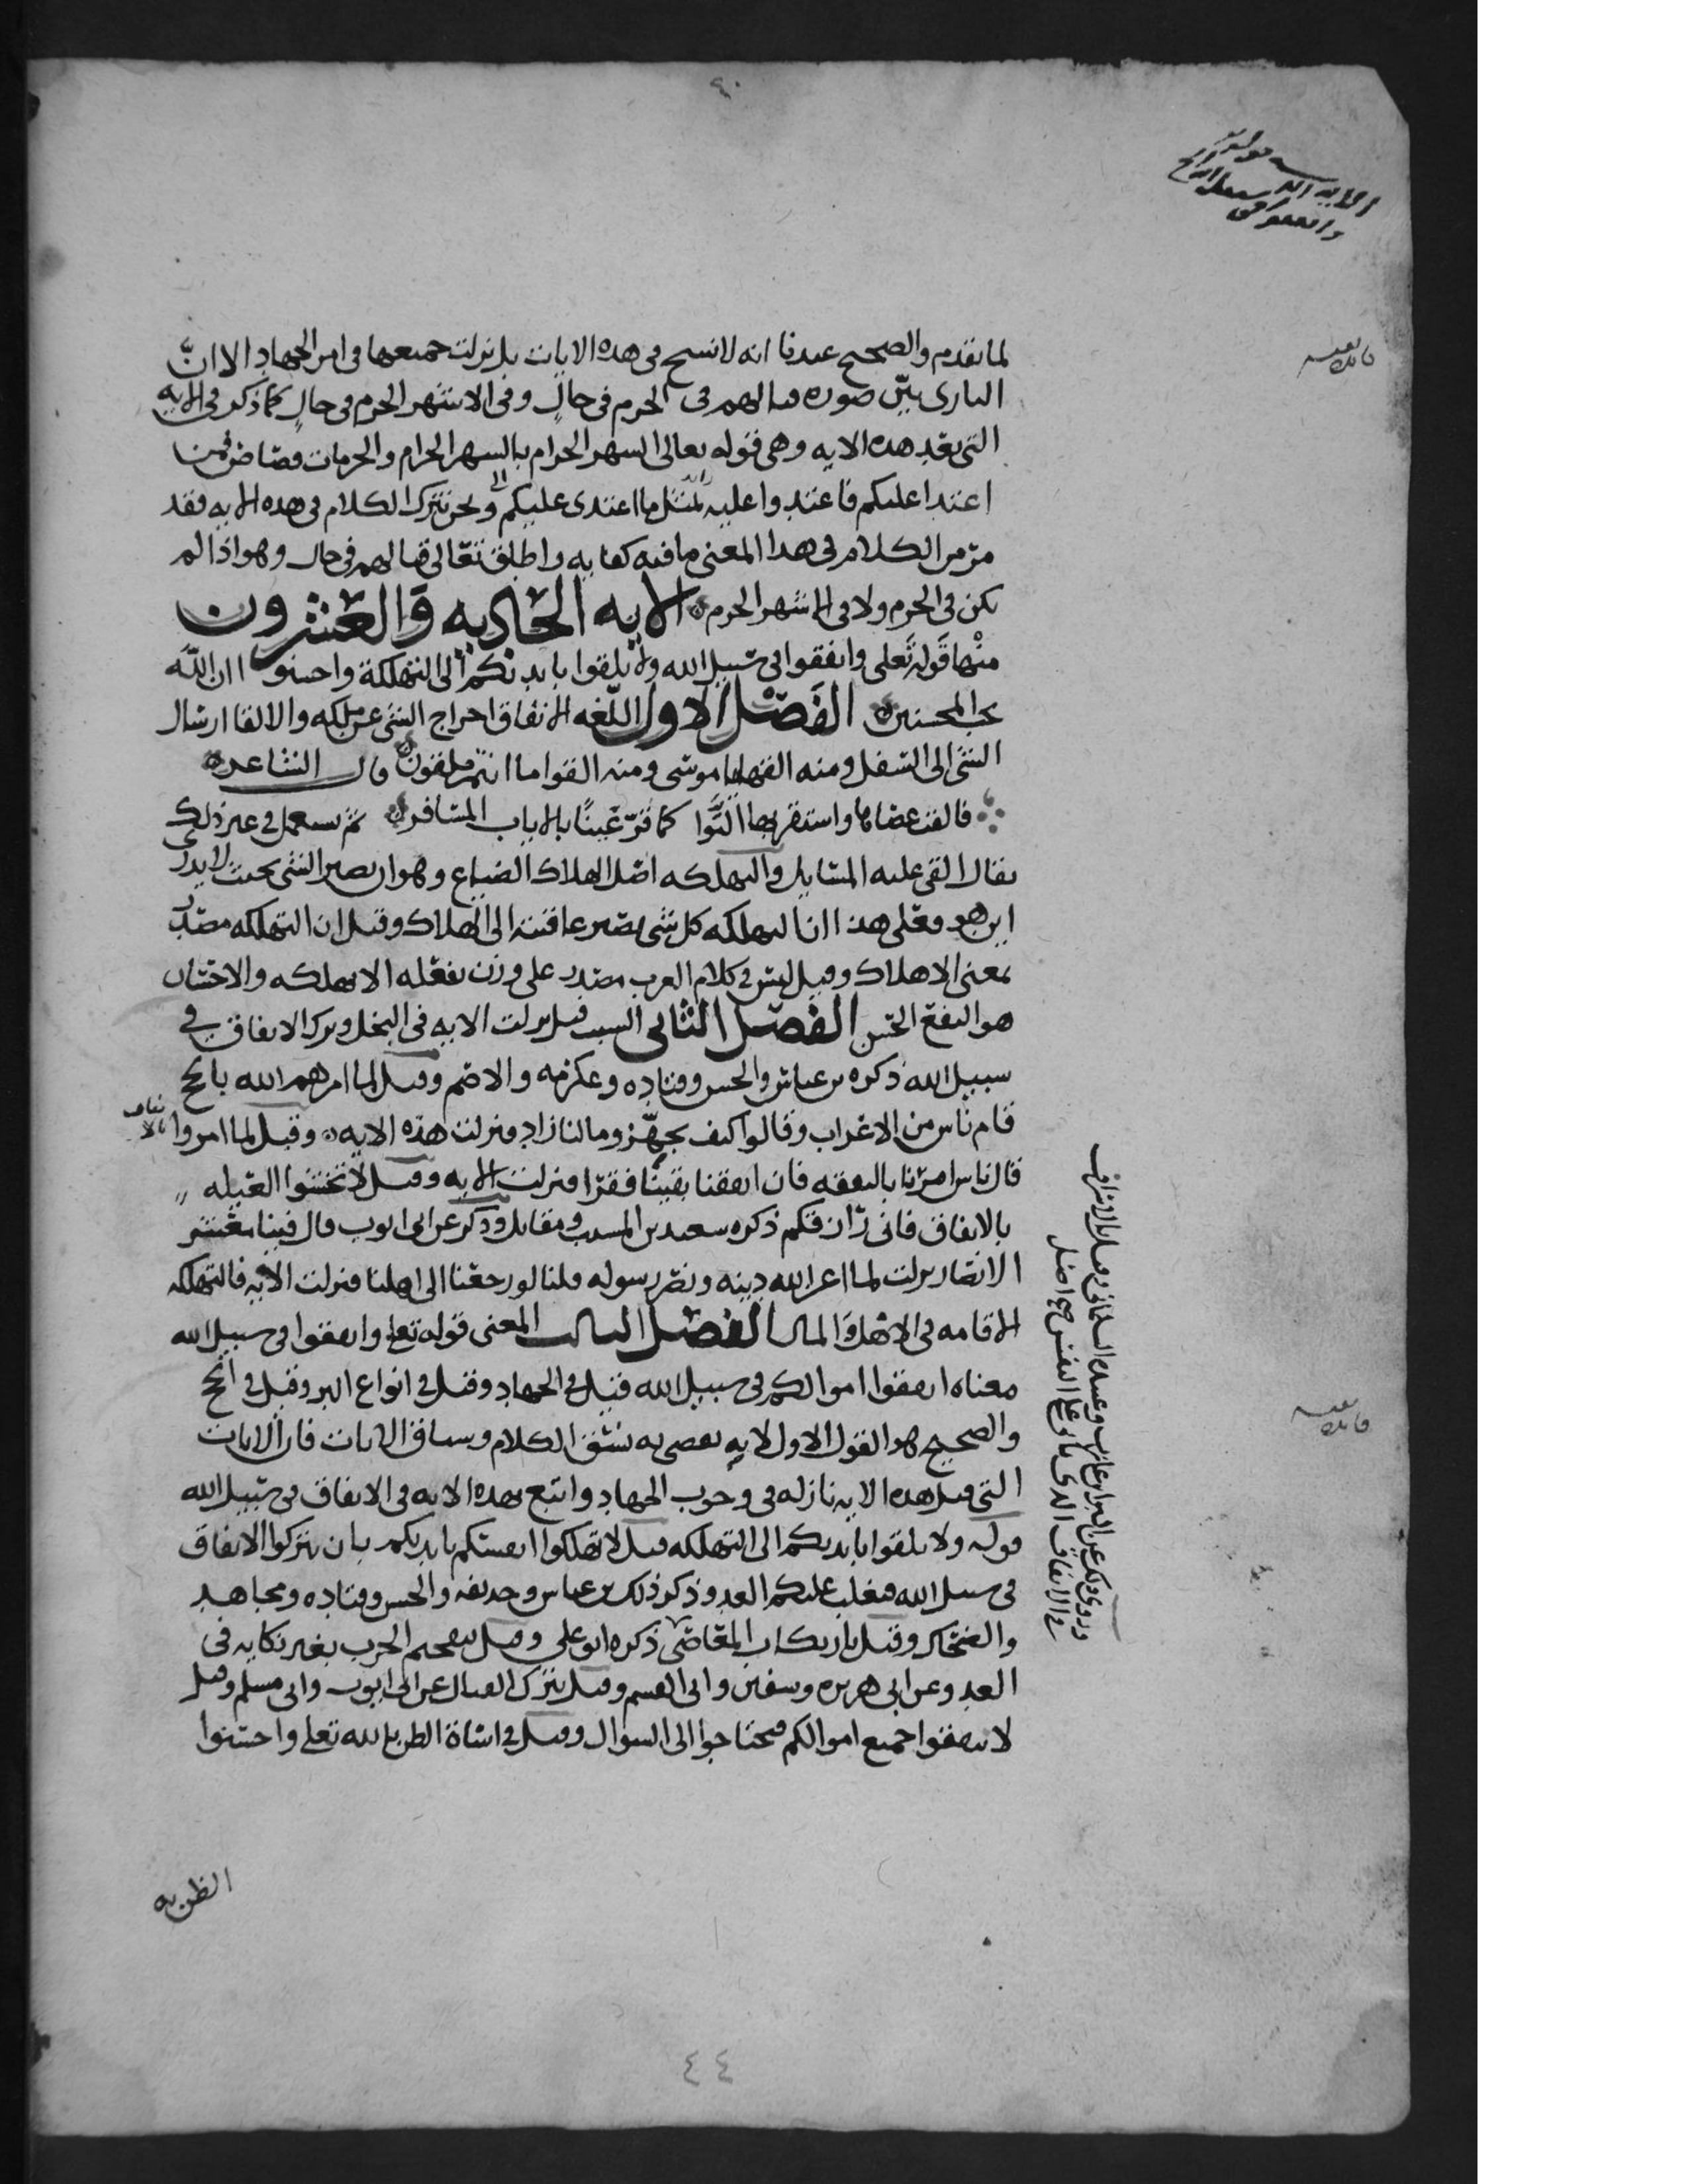 لما تقدم والصحيح عندنا انه لا نسخ في هذه الايات بل نزلت جميعها في امر الجهاد الا انّ
الباري بيّن صوره قتالهم في الحرم في حالٍ وفي الاشهر الحرم في حالٍ كما ذكر في الايه
التي بعد هذه الايه وهي قوله تعالى الشهر الحرام بالشهر الحرام والحرمات قصاص فمن
اعتدا عليكم فاعتدوا عليه بمثل ما اعتدى عليكم ونحن نترك الكلام في هذه الايه فقد
مرّ من الكلام في هذا المعنى ما فيه كفايه واطلق تعالى قتالهم في حال وهو اذا لم
يكن في الحرم ولا في الاشهر الحرم الايه الحاديه والعشرون
منها قوله تعلى وانفقوا في سبيل الله ولا تلقوا بايديكم الى التهلكة واحسنوا ان الله
يحب المحسنين الفصل الاول اللغه الانفاق اخراج الشي عن ملكه والالقا ارسال
الشي الى السفل ومنه القها يا موسى ومنه القوا ما انتم ملقون قال الشاعر
فالقت عصاها واستقر بها النوا كما قرّ عينًا بالاياب المسافر ثم يستعمل في غير ذلك
يقال القى عليه المسايل والتهلكه اصل الهلاك الضياع وهو ان يصير الشي بحيث لا يدرى
اين هو فعلى هذا ان التهلكه كل شي يصير عاقبته الى الهلاك وقيل ان التهلكه مصدر
بمعنى الاهلاك وقيل ليس في كلام العرب مصدر على وزن تفعله الا تهلكه والاحسان
هو النفع الحسن الفصل الثاني السبب قيل نزلت الايه في البخل وترك الانفاق في
سبيل الله ذكره بن عباس والحسن وقتاده وعكرمه والاصم وقيل لما امرهم الله بالحج
قام ناس من الاعراب وقالوا كيف نجهّز وما لنا زاد فنزلت هذه الايه وقيل لما امروا بالانفاق
قال ناس امرنا بالنفقه فان انفقنا بقينا فقرا فنزلت الايه وقيل لا تخشوا العيله
بالانفاق فاني رازقكم ذكره سعيد بن المسيب ومقاتل وذكر عن ابي ايوب قال فينا معشر
الانصار نزلت لما اعز الله دينه ونصر رسوله قلنا لو رجعنا الى اهلنا فنزلت الايه فالتهلكه
الاقامه في الاهل والمال الفصل الثالث المعنى قوله تعلى وانفقوا في سبيل الله
معناه انفقوا اموالكم في سبيل الله قيل في الجهاد وقيل في انواع البر وقيل في الحج
والصحيح هو القول الاول لانه يقضي به نسق الكلام وسياق الايات فان الايات
التي قبل هذه الايه نازله في وجوب الجهاد واتبع بهذه الايه في الانفاق في سبيل الله
قوله ولا تلقوا بايديكم الى التهلكه قيل لا تهلكوا انفسكم بايديكم بان تتركوا الانفاق
في سبيل الله فيغلب عليكم العدو وذكر ذلك بن عباس وحذيفه والحسن وقتاده ومجاهد
والضحاك وقيل بارتكاب المعاصي ذكره ابو علي وقيل يتقحم الحرب بغير نكايه في
العدو وعن ابي هريره وسفين وابي القسم وقيل بترك القتال عن ابي ايوب وابي مسلم وقيل
لا تنفقوا جميع اموالكم فتحتاجوا الى السوال وقيل في اساة الظن بالله تعلى واحسنوا
الظن به
٤٤